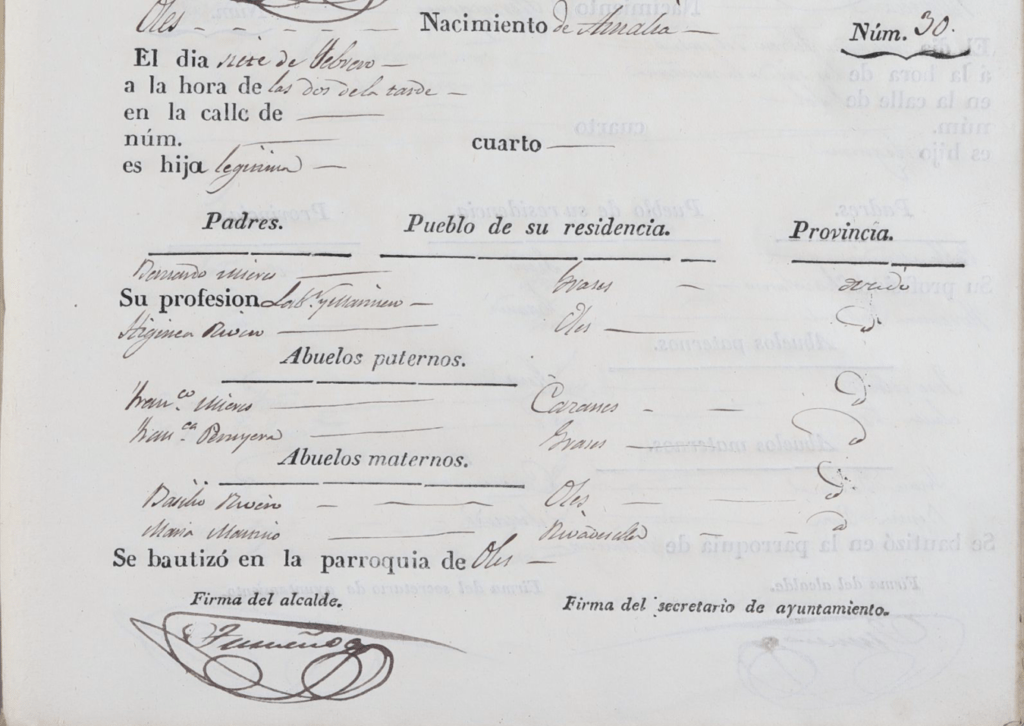 Oles - - - - - Nacimiento de Amalia — Núm. 30.
El dia siete de Febrero —
a la hora de las dos de la tarde —
en la calle de ——
núm. —— cuarto ——
es hija legitima —
Padres. Pueblo de su residencia. Provincia.
Bernardo Miera —— Grases — Oviedo
Su profesion Lab.r y —
Higinea —— Oles ——
Abuelos paternos.
Fran.co —— Caranes - -
Fran.ca Peruyera —— Grases ——
Abuelos maternos.
Basilio — — — Oles — —
Maria Martino — — Rivadesella — —
Se bautizó en la parroquia de Oles —
Firma del alcalde. Firma del secretario de ayuntamiento.